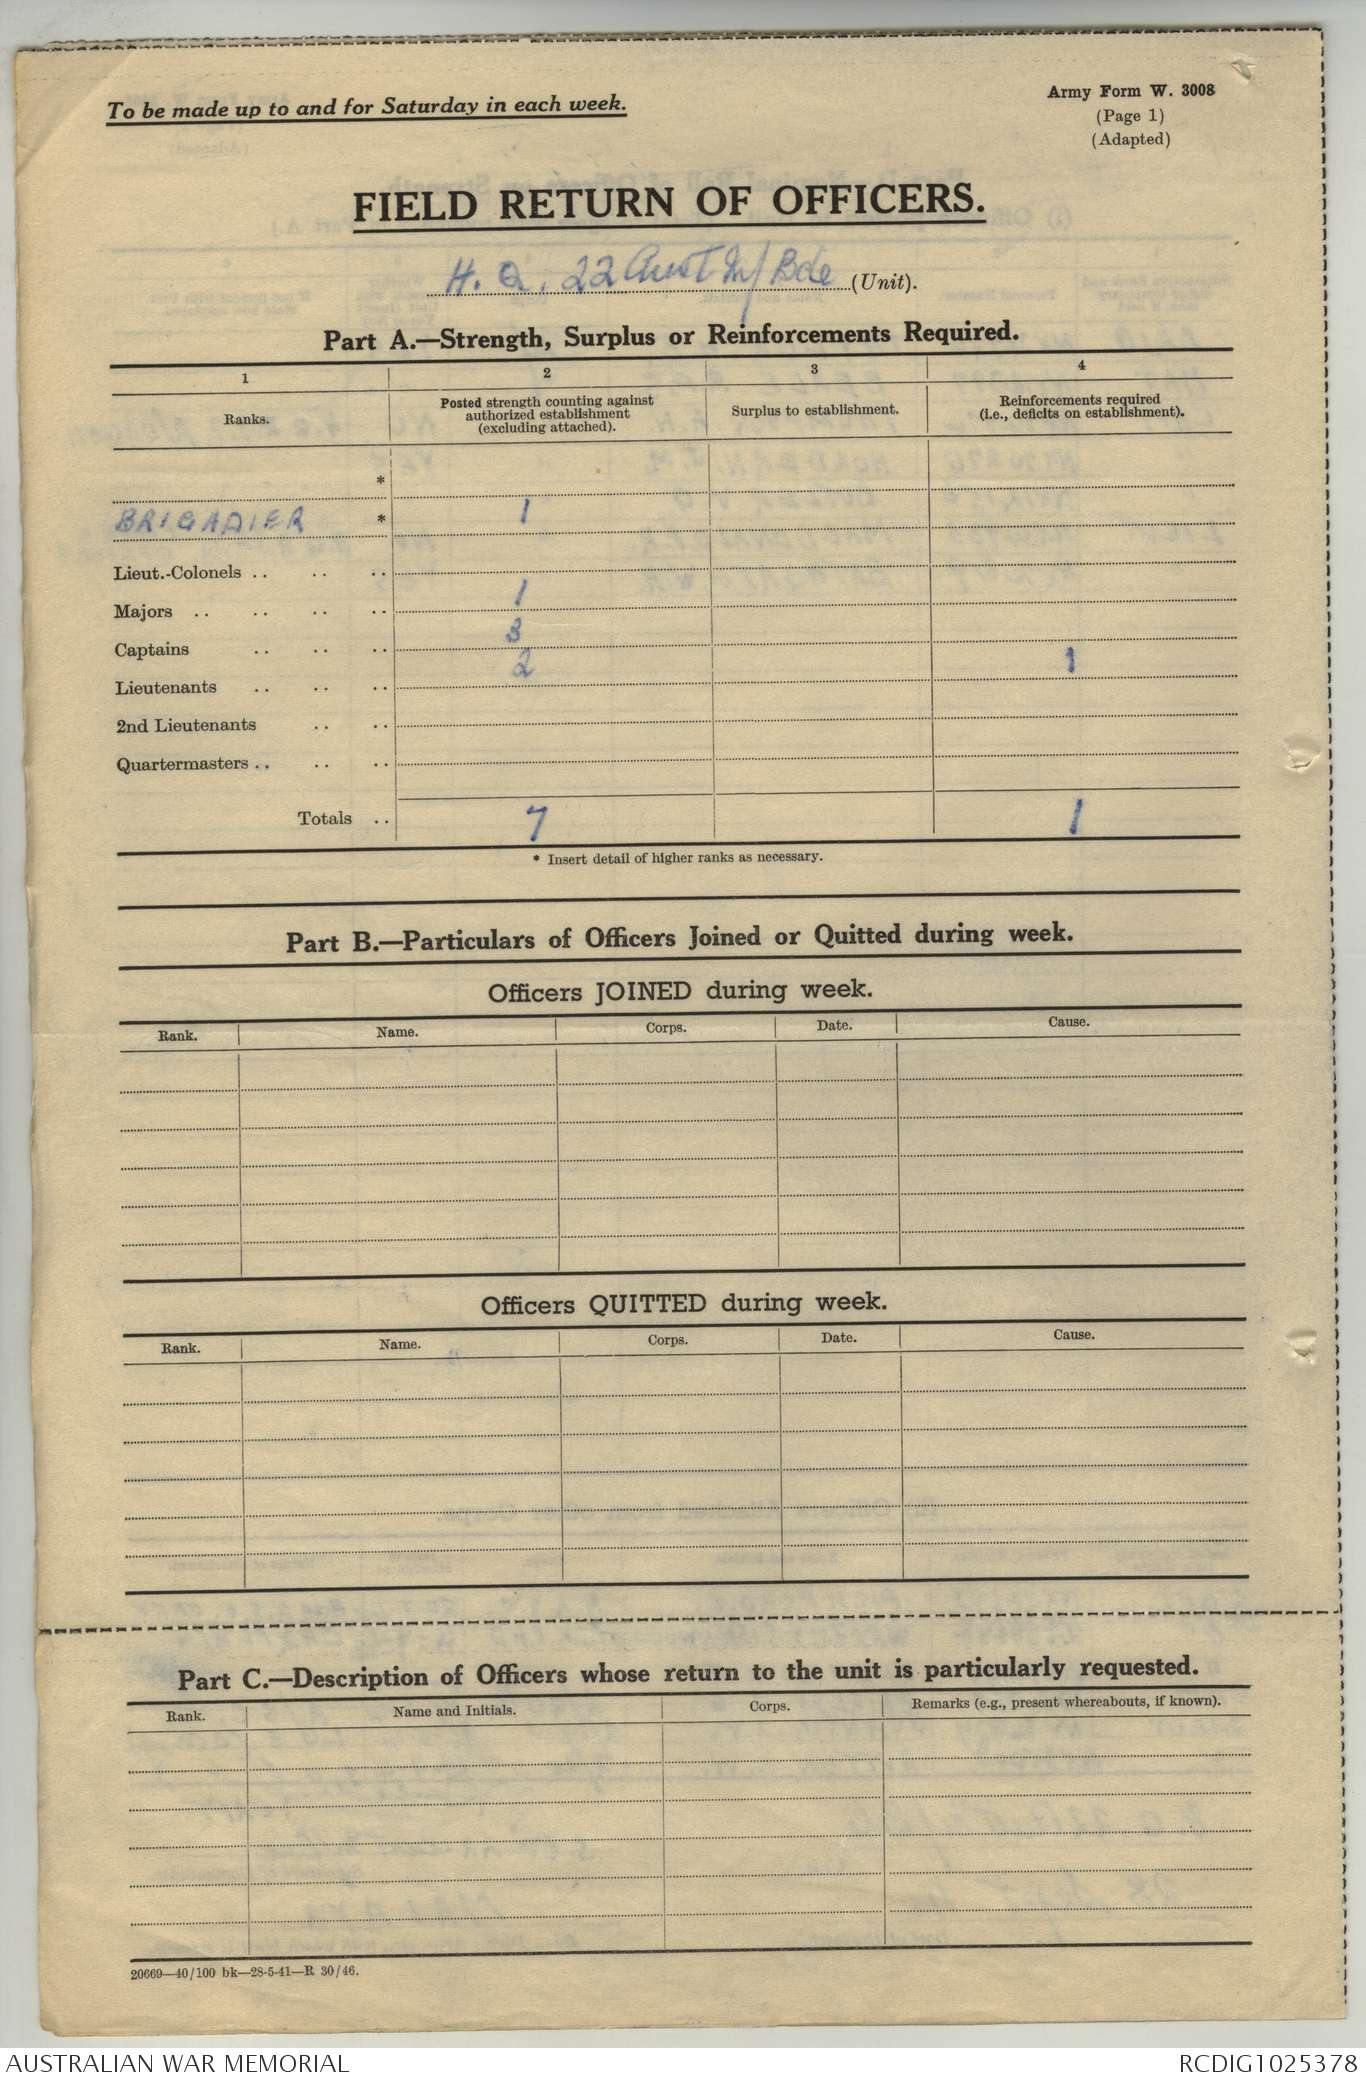 To be made up to and for Saturday in each week.
Army Form W. 3008
(Page 1)
(Adapted)
FIELD RETURN OF OFFICERS.
H.Q, 22 Aust Inf Bde (Unit).
Part A.—Strength, Surplus or Reinforcements Required.
1 2 3 4
Ranks. Posted strength counting against authorized establishment (excluding attached). Surplus to establishment. Reinforcements required (i.e., deficits on establishment).
*
BRIGADIER * 1
Lieut.-Colonels .. .. ..
Majors .. .. .. .. 1
Captains .. .. .. 3
Lieutenants .. .. .. 2 1
2nd Lieutenants .. ..
Quartermasters .. .. ..
Totals .. 7 1
* Insert detail of higher ranks as necessary.
Part B.—Particulars of Officers Joined or Quitted during week.
Officers JOINED during week.
Rank. Name. Corps. Date. Cause.
Officers QUITTED during week.
Rank. Name. Corps. Date. Cause.
Part C.—Description of Officers whose return to the unit is particularly requested.
Rank. Name and Initials. Corps. Remarks (e.g., present whereabouts, if known).
20669—40/100 bk—28-5-41—R 30/46.
AUSTRALIAN WAR MEMORIAL
RCDIG1025378